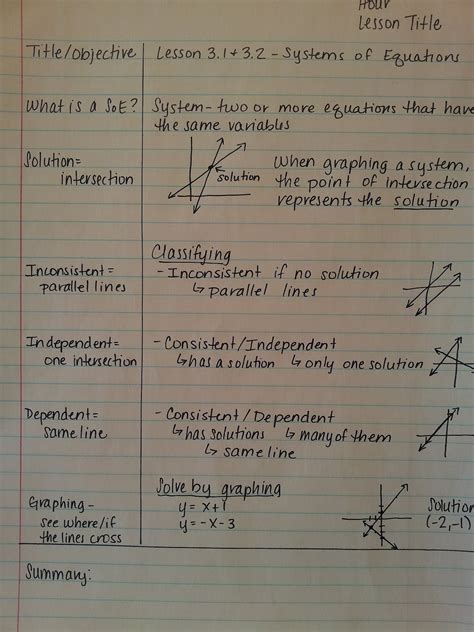 Hour
Lesson Title
Title/Objective
Lesson 3.1 + 3.2 - Systems of Equations
What is a SoE?
System - two or more equations that have
the same variables
Solution =
intersection
solution
When graphing a system,
the point of intersection
represents the solution
Classifying
Inconsistent =
parallel lines
- Inconsistent if no solution
↳ parallel lines
Independent =
one intersection
- Consistent/Independent
↳ has a solution ↳ only one solution
Dependent =
same line
- Consistent/Dependent
↳ has solutions ↳ many of them
↳ same line
Graphing -
see where/if
the lines cross
Solve by graphing
y = x+1
y = -x-3
Solution
(-2,-1)
Summary: